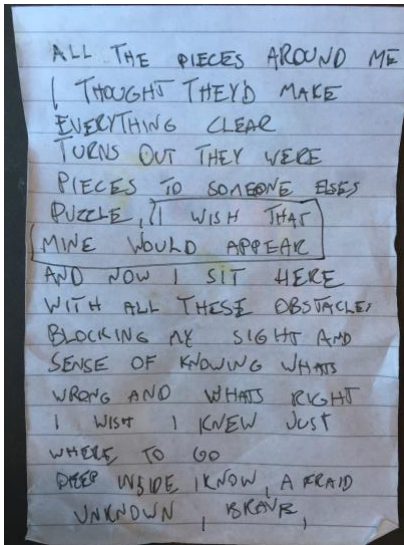 ALL THE PIECES AROUND ME
I THOUGHT THEY'D MAKE
EVERYTHING CLEAR
TURNS OUT THEY WERE
PIECES TO SOMEONE ELSES
PUZZLE, I WISH THAT
MINE WOULD APPEAR
AND NOW I SIT HERE
WITH ALL THESE OBSTACLES
BLOCKING MY SIGHT AND
SENSE OF KNOWING WHATS
WRONG AND WHATS RIGHT
I WISH I KNEW JUST
WHERE TO GO
DEEP INSIDE I KNOW, AFRAID
UNKNOWN, BRAVE,